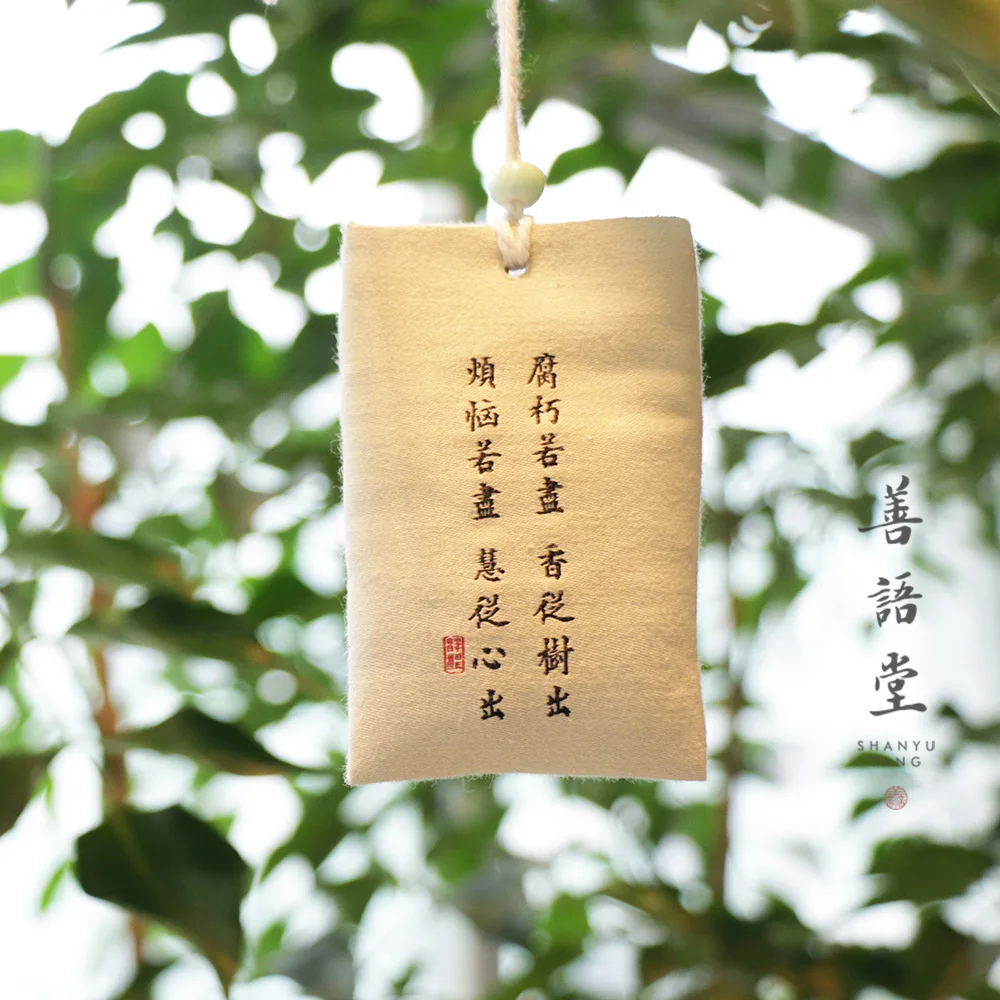 腐朽若盡 香從樹出
煩惱若盡 慧從心出
善語堂
SHANYU